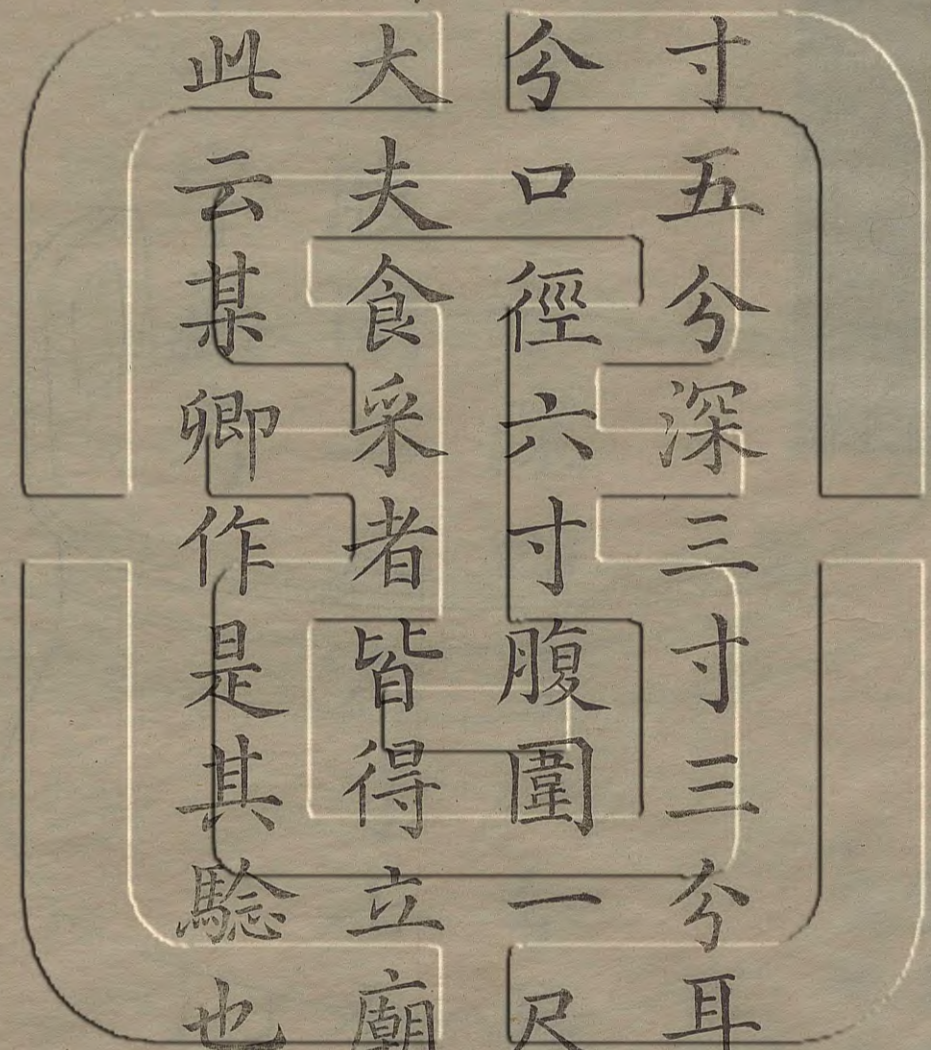 寸五分深三寸三分耳
分口徑六寸腹圍一尺
大夫食采者皆得立廟
此云某卿作是其騐也